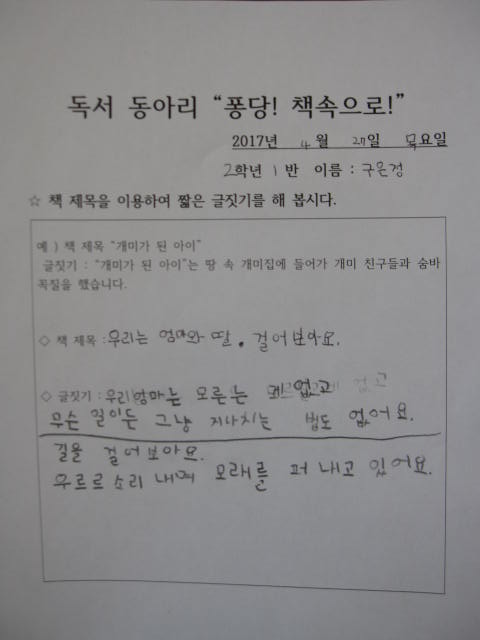 독서 동아리 “퐁당! 책속으로!”
2017년 4 월 27일 목요일
2학년 1 반 이름 : 구은정
☆ 책 제목을 이용하여 짧은 글짓기를 해 봅시다.
예 ) 책 제목 “개미가 된 아이”
글짓기 : “개미가 된 아이”는 땅 속 개미집에 들어가 개미 친구들과 숨바
꼭질을 했습니다.
◇ 책 제목 : 우리는 엄마와 딸 . 걸어보아요.
◇ 글짓기 : 우리엄마는 모르는 게 없고
무슨 일이든 그냥 지나치는 법도 없어요.
길을 걸어보아요.
우르르소리 내며 모래를 퍼 내고 있어요.